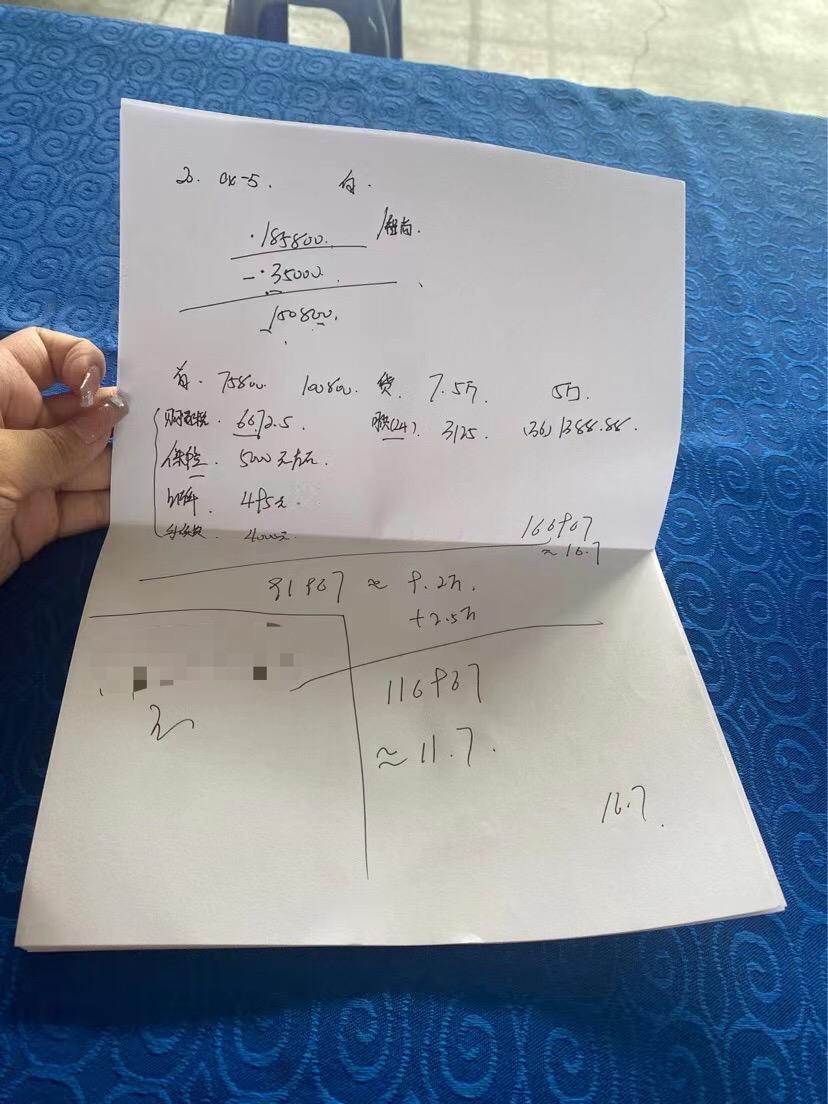 2.0 CX-5. 白.
185800. 智尚.
-35000.
150800.
首. 75800. 100800. 贷. 7.5万 5万.
购置税. 6672.5. 月供(24). 3125. (36) 1388.88.
保险. 5000元左右.
上牌. 495元.
手续费. 4000元.
166967
≈16.7
91967 ≈ 9.2万.
+2.5万
116967
≈11.7.
16.7.